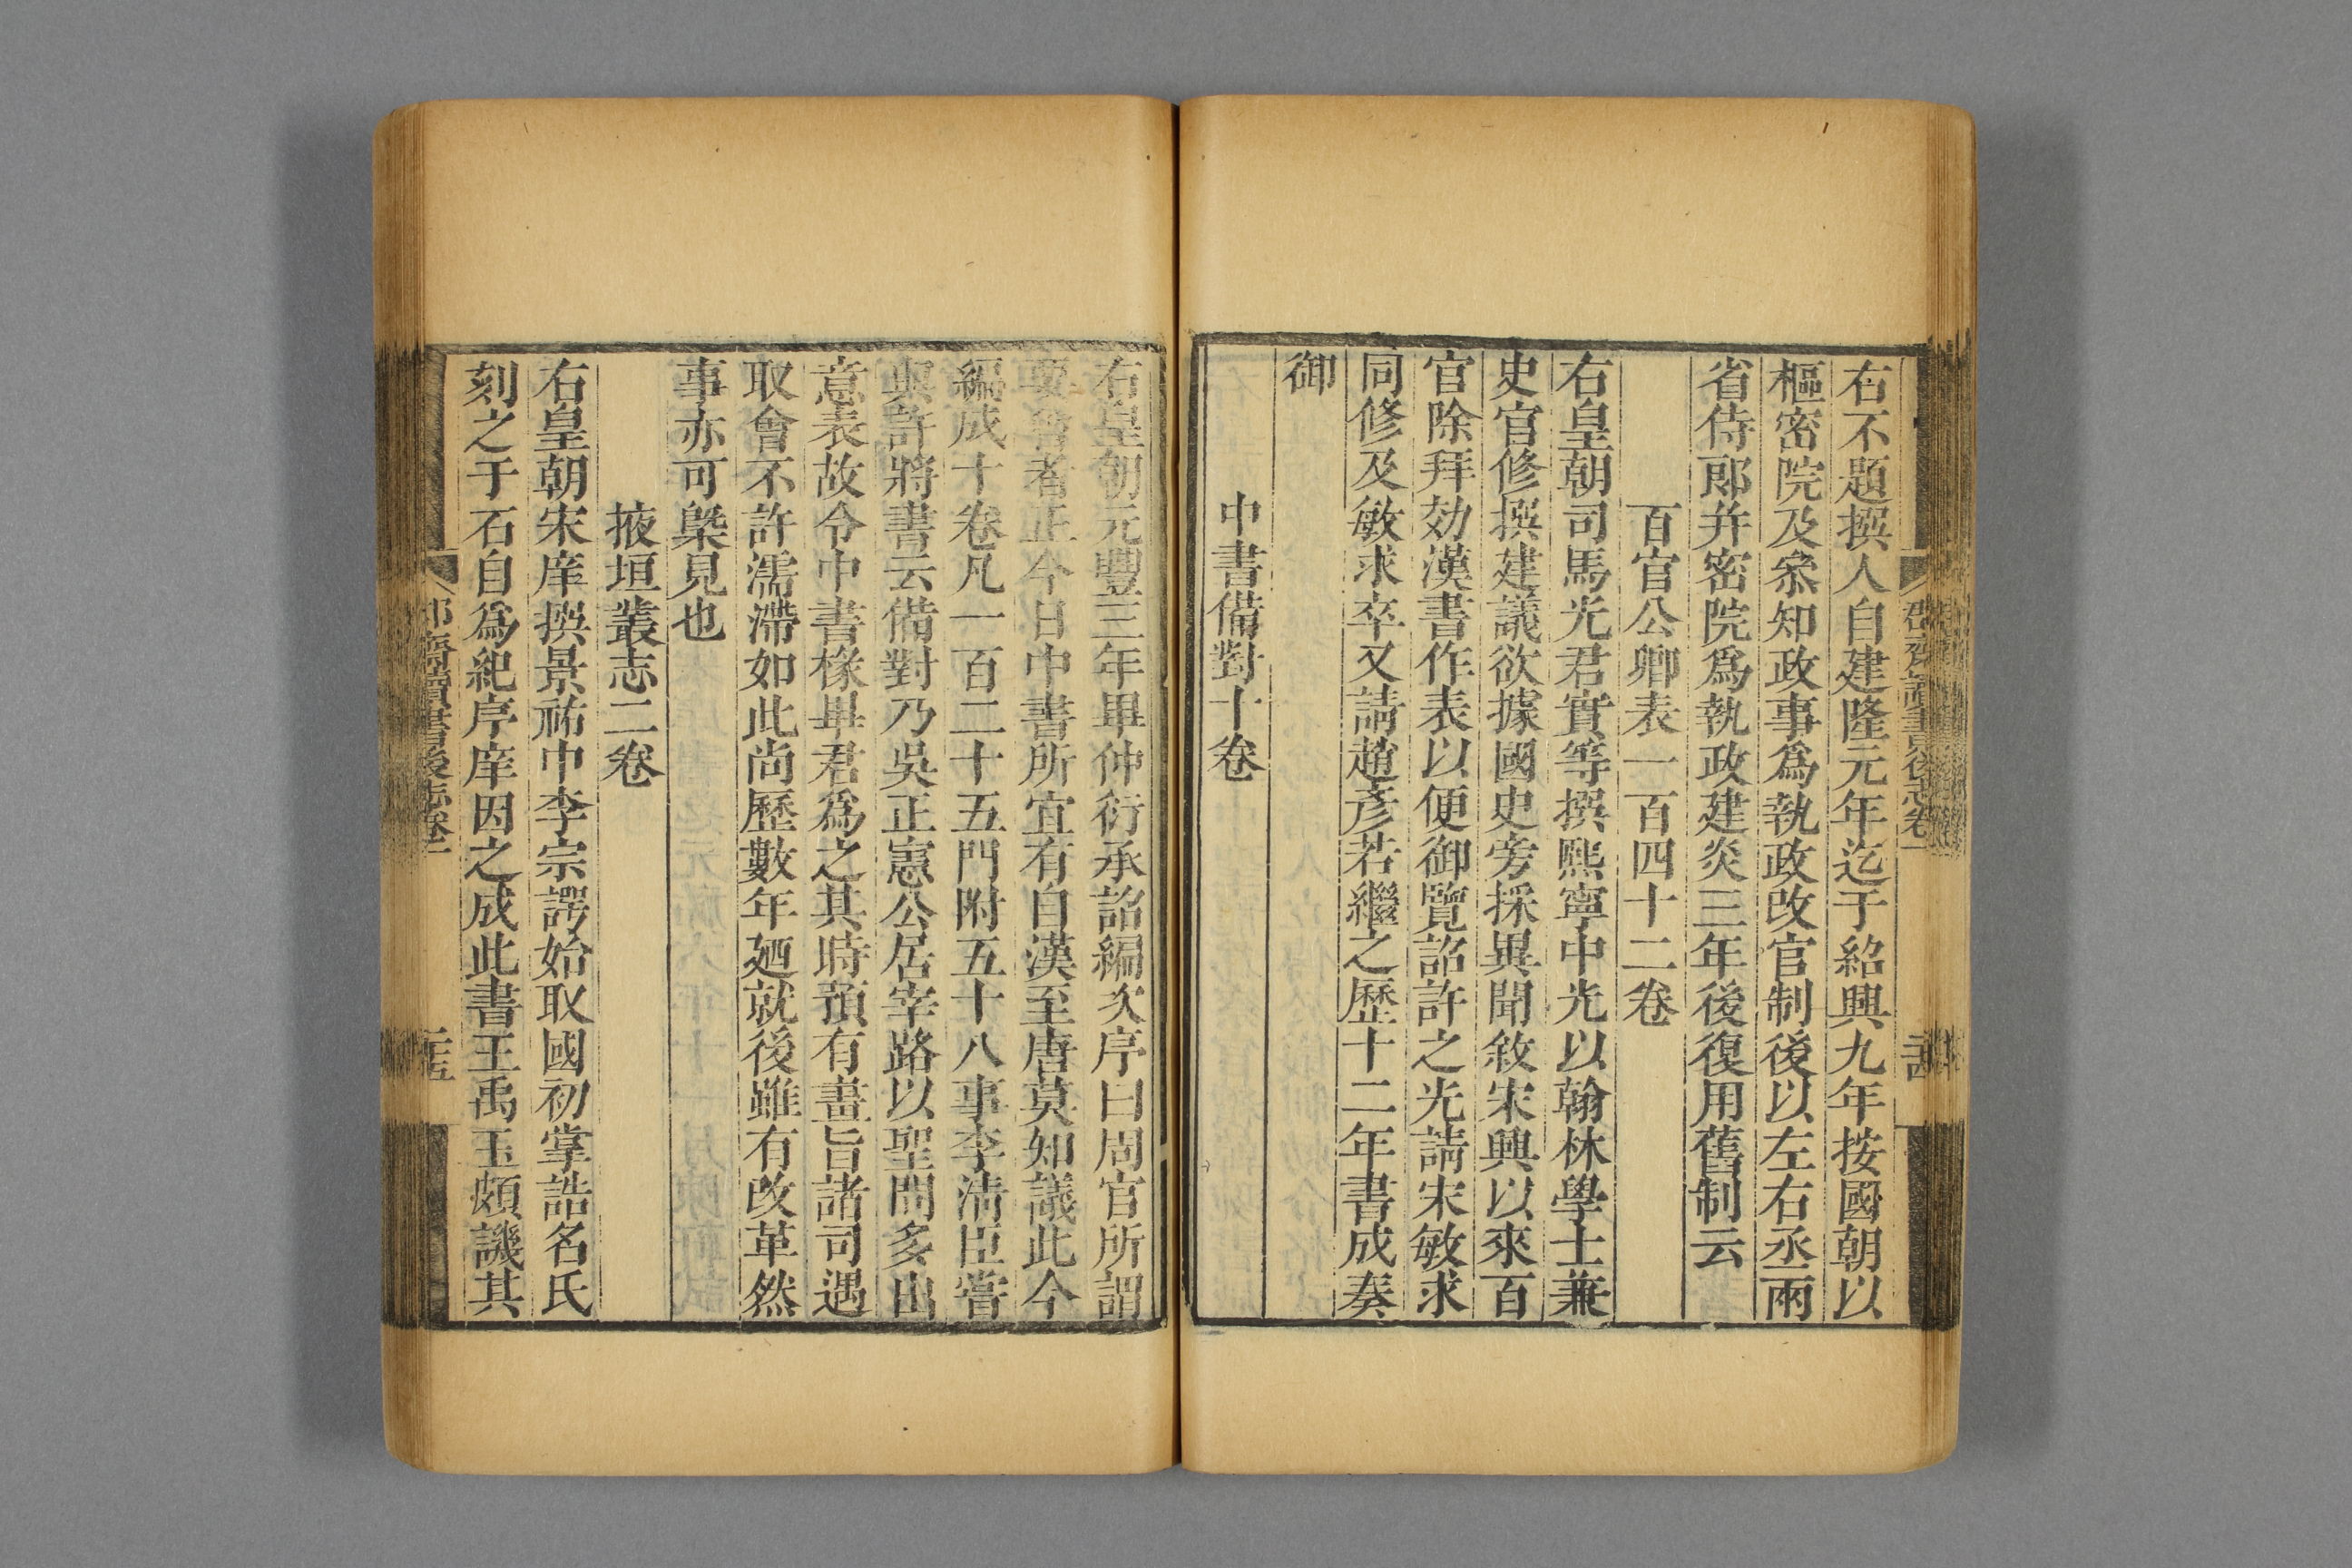 右不題撰人自建隆元年迄于紹興九年按國朝以
樞密院及叅知政事爲執政改官制後以左右丞兩
省侍郎并密院爲執政建炎三年後復用舊制云
百官公卿表一百四十二卷
右皇朝司馬光君實等撰熙寧中光以翰林學士兼
史官修撰建議欲據國史旁採異聞敘宋興以來百
官除拜効漢書作表以便御覽詔許之光請宋敏求
同修及敏求卒又請趙彥若繼之歷十二年書成奏
御
中書備對十卷
右皇朝元豐三年畢仲衍承詔編次序曰周官所謂
要會者正今日中書所宜有自漢至唐莫知議此今
編成十卷凡一百二十五門附五十八事李淸臣嘗
與許將書云備對乃吳正憲公居宰路以聖問多出
意表故令中書椽畢君爲之其時預有畫旨諸司遇
取會不許濡滯如此尚歷數年廼就後雖有改革然
事亦可槩見也
掖垣叢志二卷
右皇朝宋庠撰景祐中李宗諤始取國初掌誥名氏
刻之于石自爲紀序庠因之成此書王禹玉頗譏其
郡齋讀書後志卷一
二十五